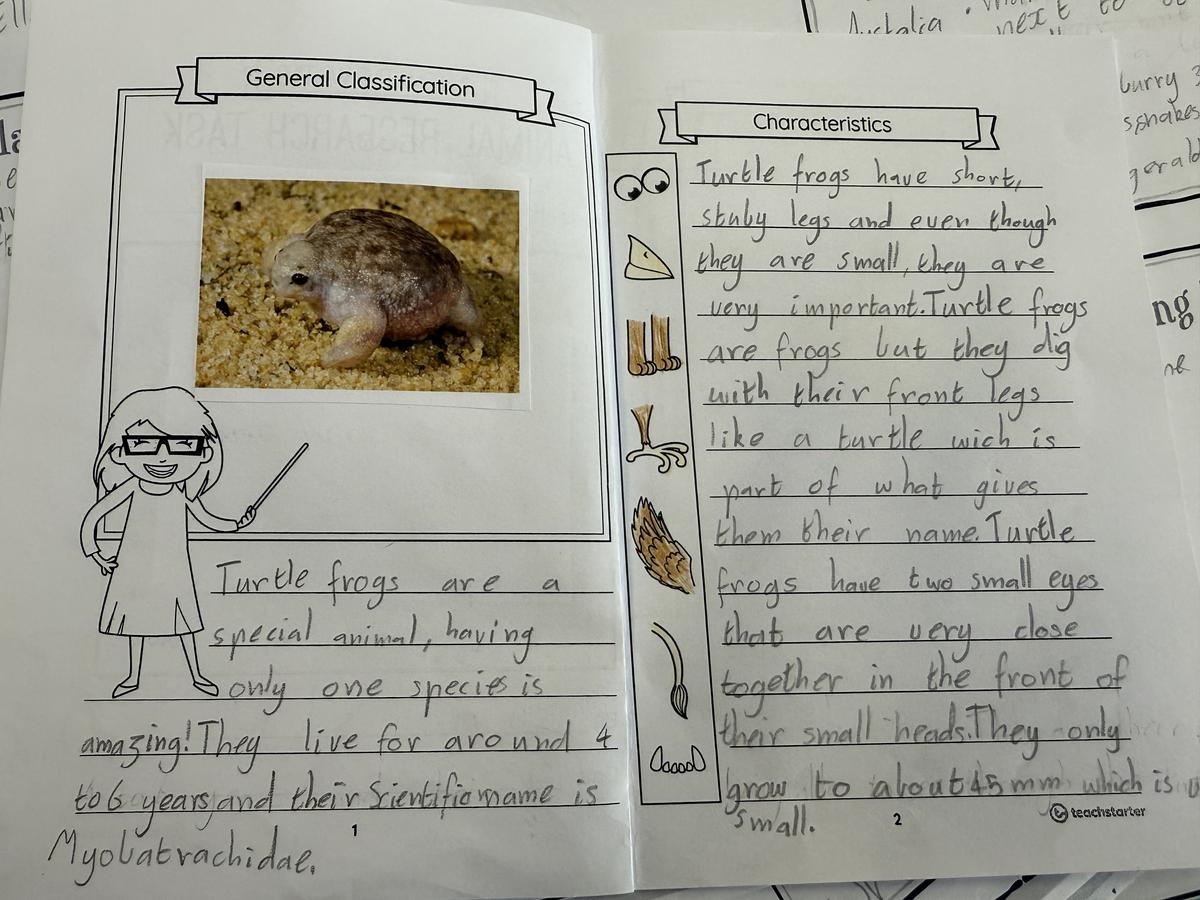 General Classification
Turtle frogs are a
special animal, having
only one species is
amazing! They live for around 4
to 6 years, and their Scientific name is
Myobatrachidae.
1
Characteristics
Turtle frogs have short,
stuby legs and even though
they are small, they are
very important. Turtle frogs
are frogs but they dig
with their front legs
like a turtle wich is
part of what gives
them their name. Turtle
frogs have two small eyes
that are very close
together in the front of
their small heads. They only
grow to about 45 mm which is
small.
2
teachstarter
Australia
next to
burry